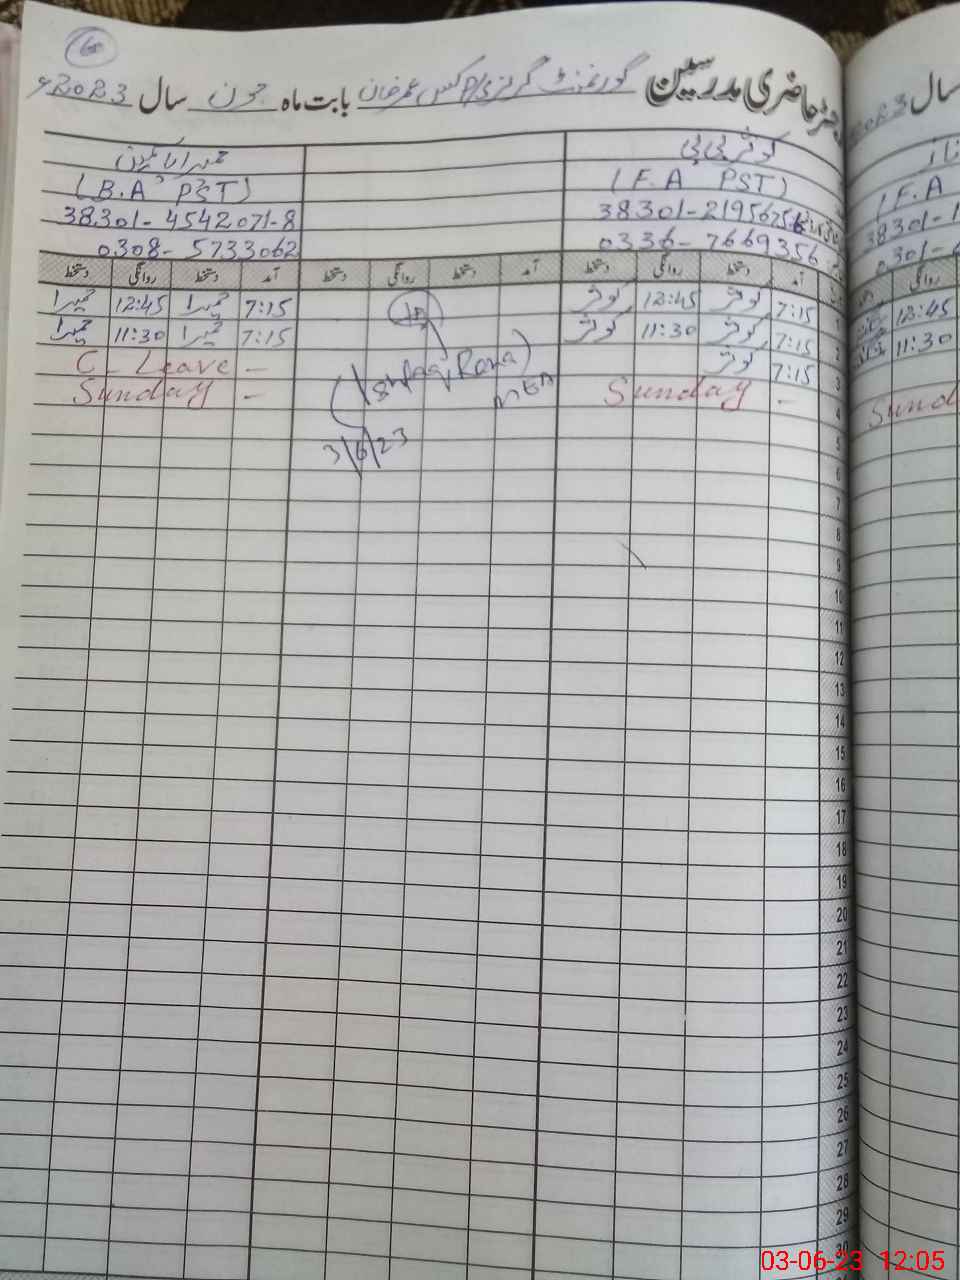 60
رجسٹر حاضری مدرسین گورنمنٹ گرلز پرائمری عمر خان بابت ماہ جون سال 2023ء
کوثر بی بی
(F.A PST)
38301-2195675-6
0336-7669356
آمد دستخط روانگی دستخط آمد دستخط روانگی دستخط آمد دستخط روانگی دستخط
1 7:15 کوثر 12:45 کوثر 7:15 حمیرا 12:45 حمیرا
2 7:15 کوثر 11:30 کوثر 7:15 حمیرا 11:30 حمیرا
3 7:15 کوثر - C-Leave
4 - Sunday - Sunday
(B.A PST)
38301-4542071-8
0308-5733062
(Ishfaq Rana)
MEA
3/6/23
5
6
7
8
9
10
11
12
13
14
15
16
17
18
19
20
21
22
23
24
25
26
27
28
29
30
سال 2023
(F.A
38301-1
0301-
روانگی
12:45
11:30
Sund
03-06-23 12:05